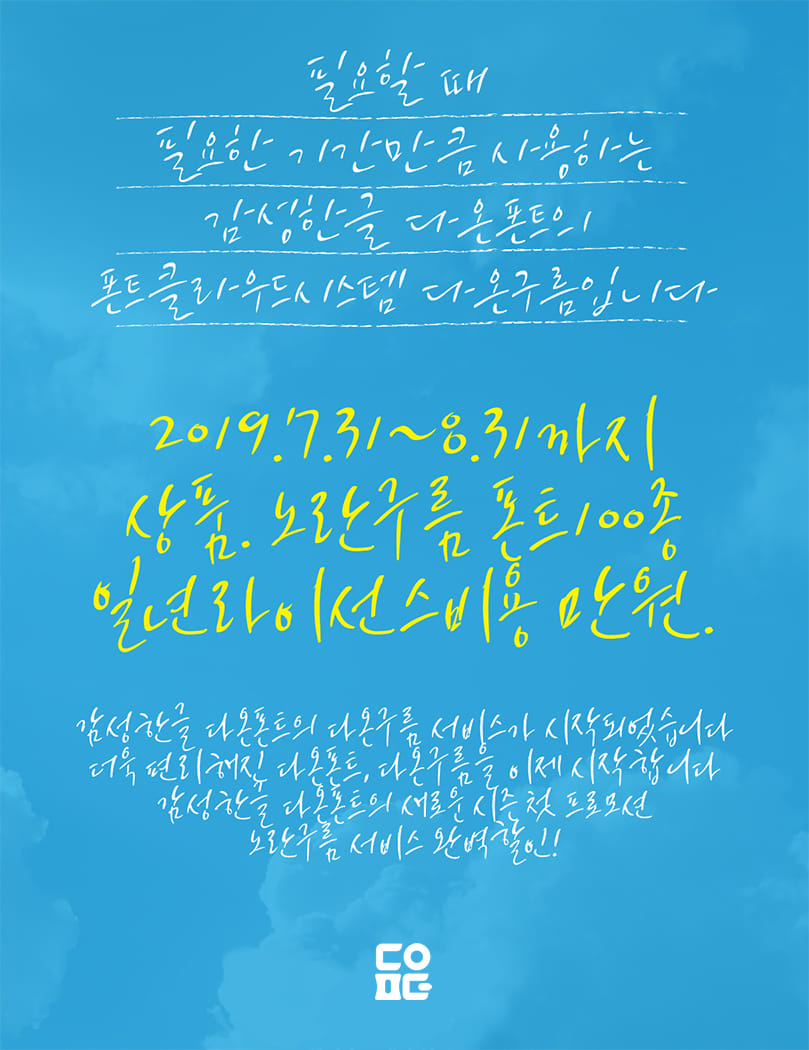 필요할 때
필요한 기간만큼 사용하는
감성한글 다온폰트의
폰트클라우드시스템 다온구름입니다
2019.7.31~8.31까지
상품. 노란구름 폰트100종
일년라이선스비용 만원.
감성한글 다온폰트의 다온구름 서비스가 시작되었습니다
더욱 편리해진 다온폰트, 다온구름을 이제 시작합니다
감성한글 다온폰트의 새로운 시즌 첫 프로모션
노란구름 서비스 완벽할인!